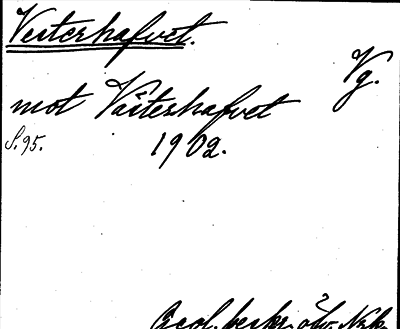 Vesterhafvet.
Vg.
mot Västerhafvet
S. 95. 1902.
Geol. beskr. öfv. Nsk.